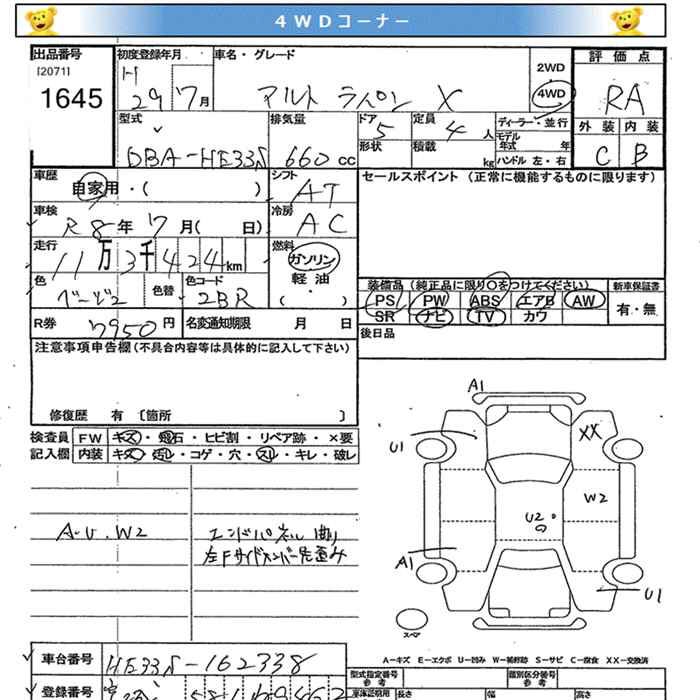 4WDコーナー
出品番号 初度登録年月 車名・グレード 評価点
[2071] H 2WD
1645 29 7月 アルト ラパン X 4WD RA
型式 排気量 ドア 5 定員 4人 ディーラー・並行 外装 内装
形状 積載 kg モデル年式 年
DBA-HE33S 660cc ハンドル 左・右 C B
車歴 シフト セールスポイント (正常に機能するものに限ります)
自家用・( ) AT
車検 冷房
R8年7月( 日) AC
走行 燃料
11万3千424km ガソリン
軽油
色 色替 色コード ( ・ ) 装備品 (純正品に限り○をつけてください) 新車保証書
ベージュ2 2BR PS PW ABS エアB AW 有・無
SR ナビ TV カワ
R券 7950円 名変通知期限 月 日 後日品
注意事項申告欄(不具合内容等は具体的に記入して下さい)
修復歴 有 〔箇所 〕
検査員 FW キズ・飛石・ヒビ割・リペア跡・×要
記入欄 内装 キズ・汚レ・コゲ・穴・スレ・キレ・破レ
A1
U1
XX
W2
U2
A1
U1
スペア
A・U・W2 エンドパネル曲り
左Fサイドメンバー先歪み
A―キズ E―エクボ U―凹み W―補修跡 S―サビ C―腐食 XX―交換済
車台番号 HE33S-162338
型式指定番号 類別区分番号
参考 参考
登録番号
長さ 幅 高さ